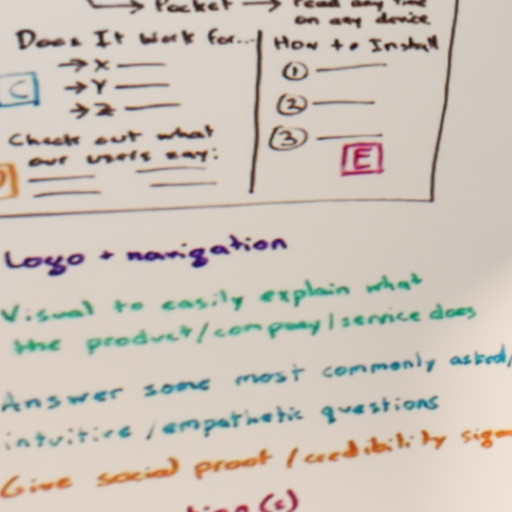 → Pocket → read any time
on any device
Does It Work for...
→ X
→ Y
→ Z
C
Check out what
our users say:
How to Install
1
2
3
E
Logo + navigation
Visual to easily explain what
the product/company/service does
Answer some most commonly asked/
intuitive/empathetic questions
Give social proof/credibility
(s)